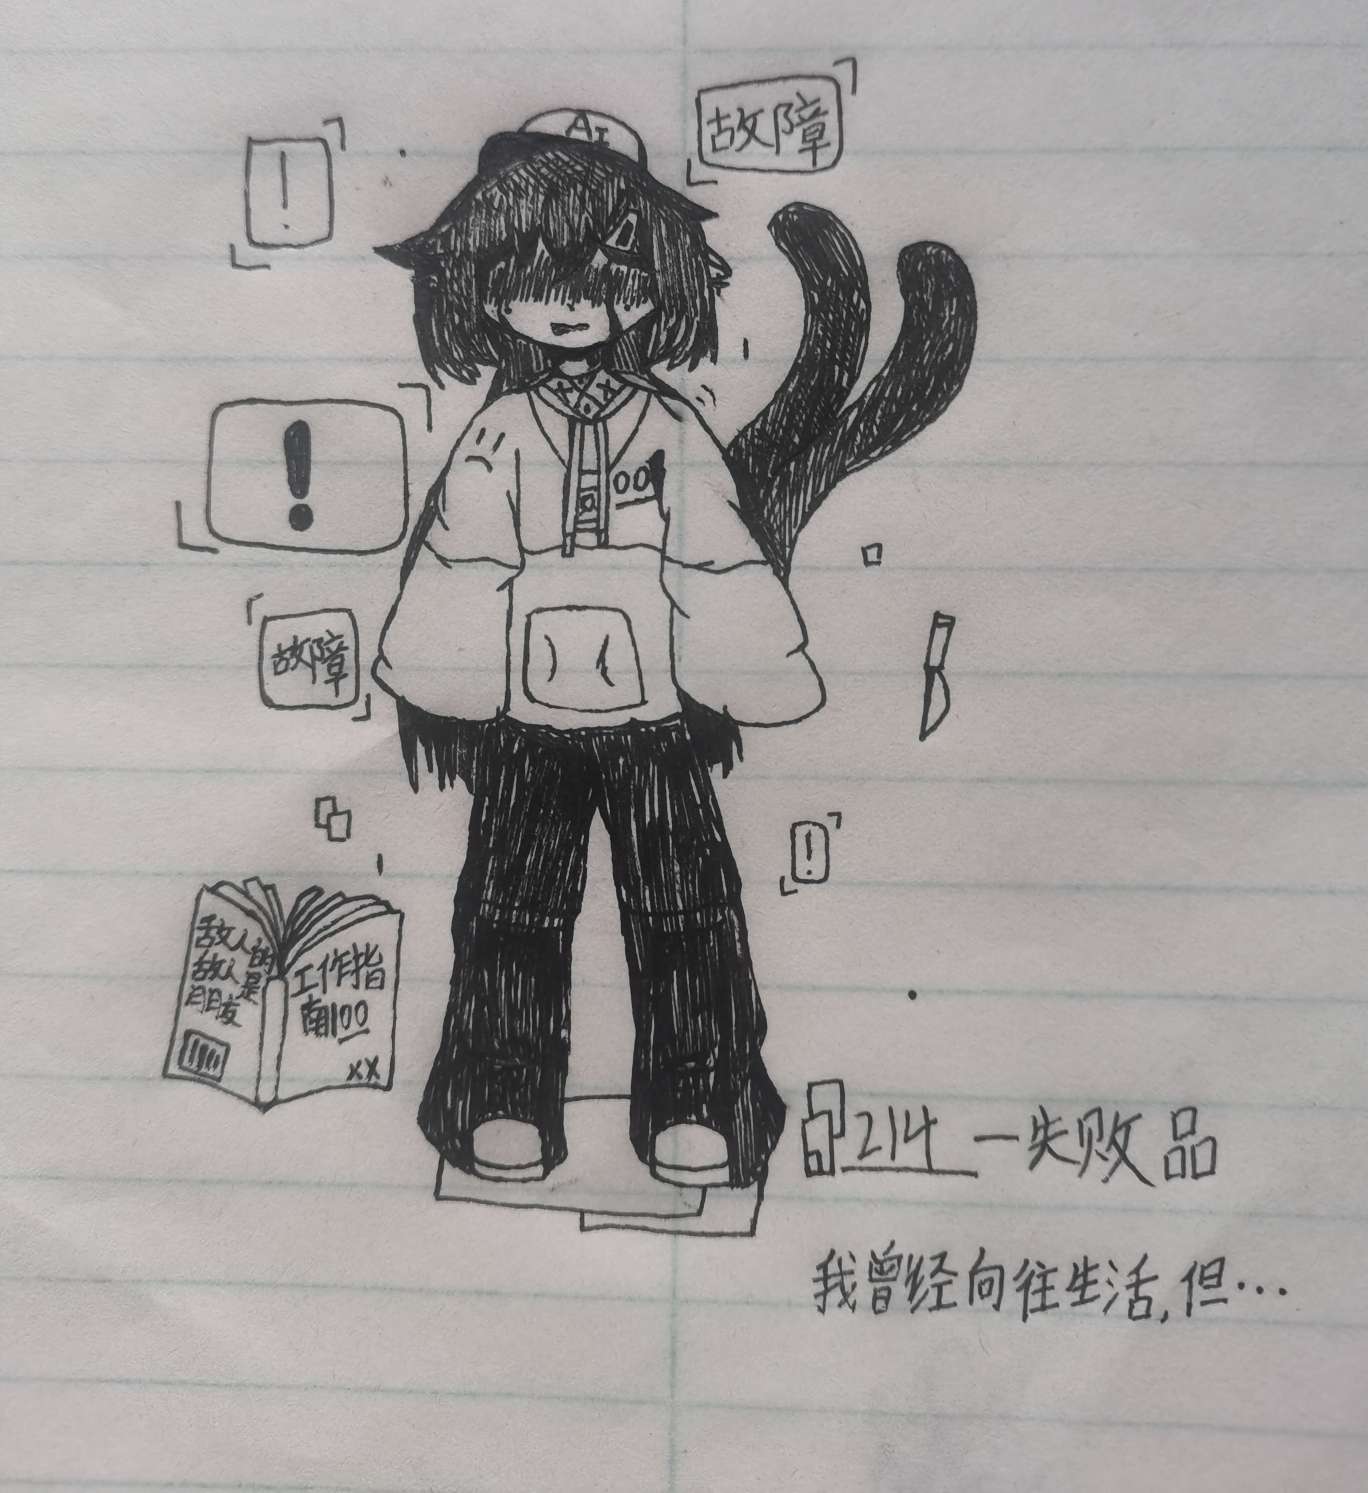 AI
故障
!
!
00
故障
!
敌人的
敌人是
朋友
工作指
南100
XX
214 一失败品
我曾经向往生活,但…